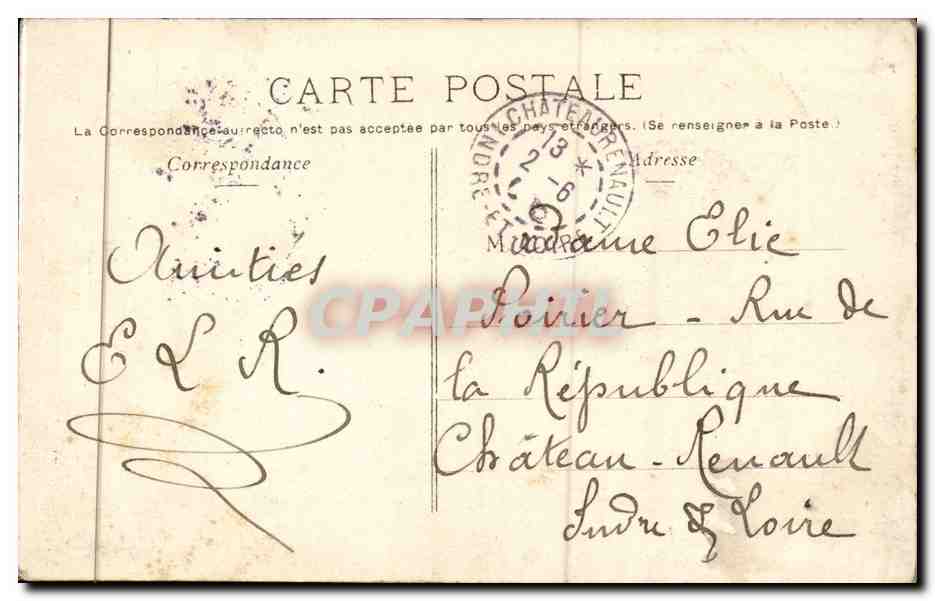 CARTE POSTALE
La Correspondance au recto n'est pas acceptée par tous les pays étrangers. (Se renseigner à la Poste.)
Correspondance
Adresse
CHATEAURENAULT
INDRE-ET-LOIRE
13
2 -6
Amitiés
E L R.
Madame Elie
Poirier - Rue de
la République
Château-Renault
Indre & Loire
CPAPHIL